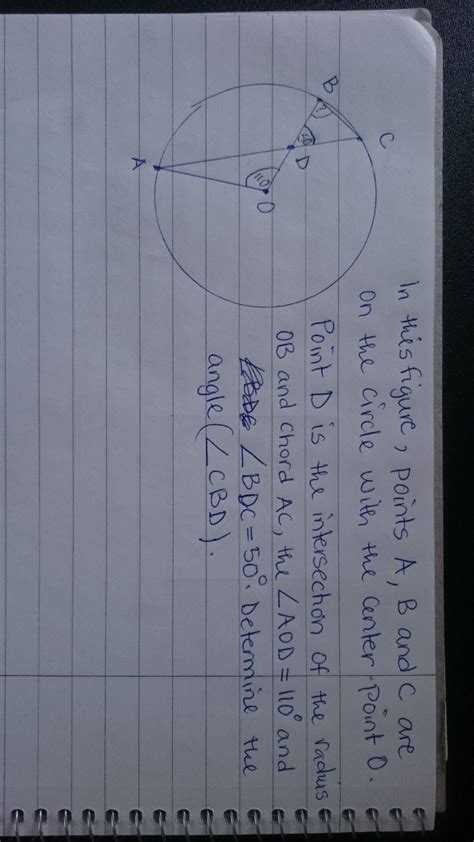 In this figure, points A, B and C are
on the circle with the center point O.
Point D is the intersection of the radius
OB and chord AC, the ∠AOD = 110° and
∠BDC = 50°. Determine the
angle (∠CBD).
C
B
?
D
110
O
A